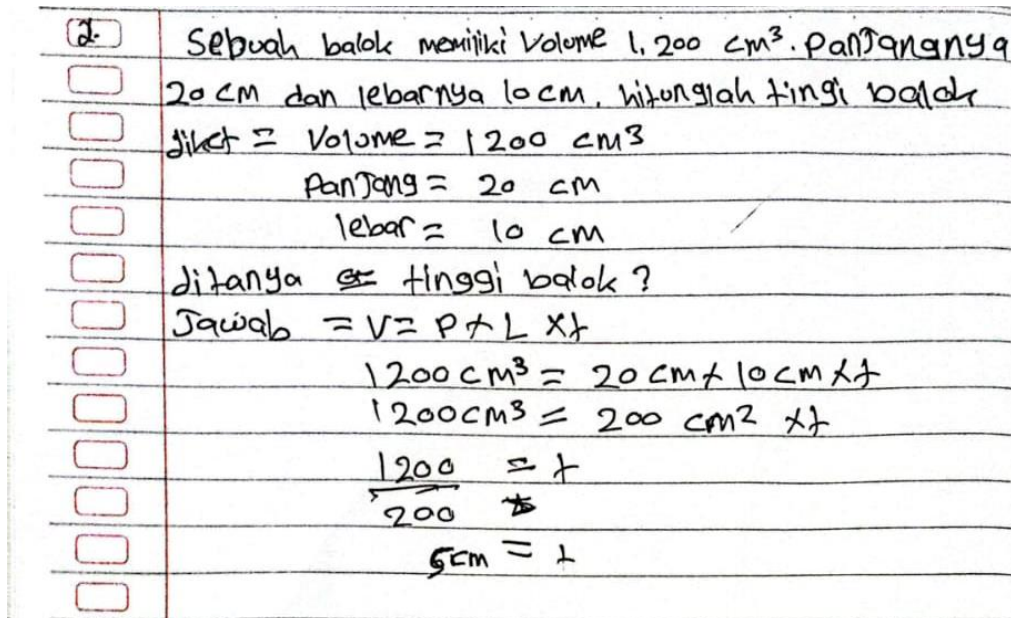 2.
Sebuah balok memiliki Volume 1.200 cm³. PanJangnya
20 cm dan lebarnya 10 cm. hitunglah tingi balok
diket = Volume = 1200 cm3
PanJang = 20 cm
lebar = 10 cm
ditanya = tinggi balok?
Jawab = V = P x L x t
1200 cm³ = 20 cm x 10 cm x t
1200 cm3 = 200 cm2 x t
1200 = t
200
5 cm = t